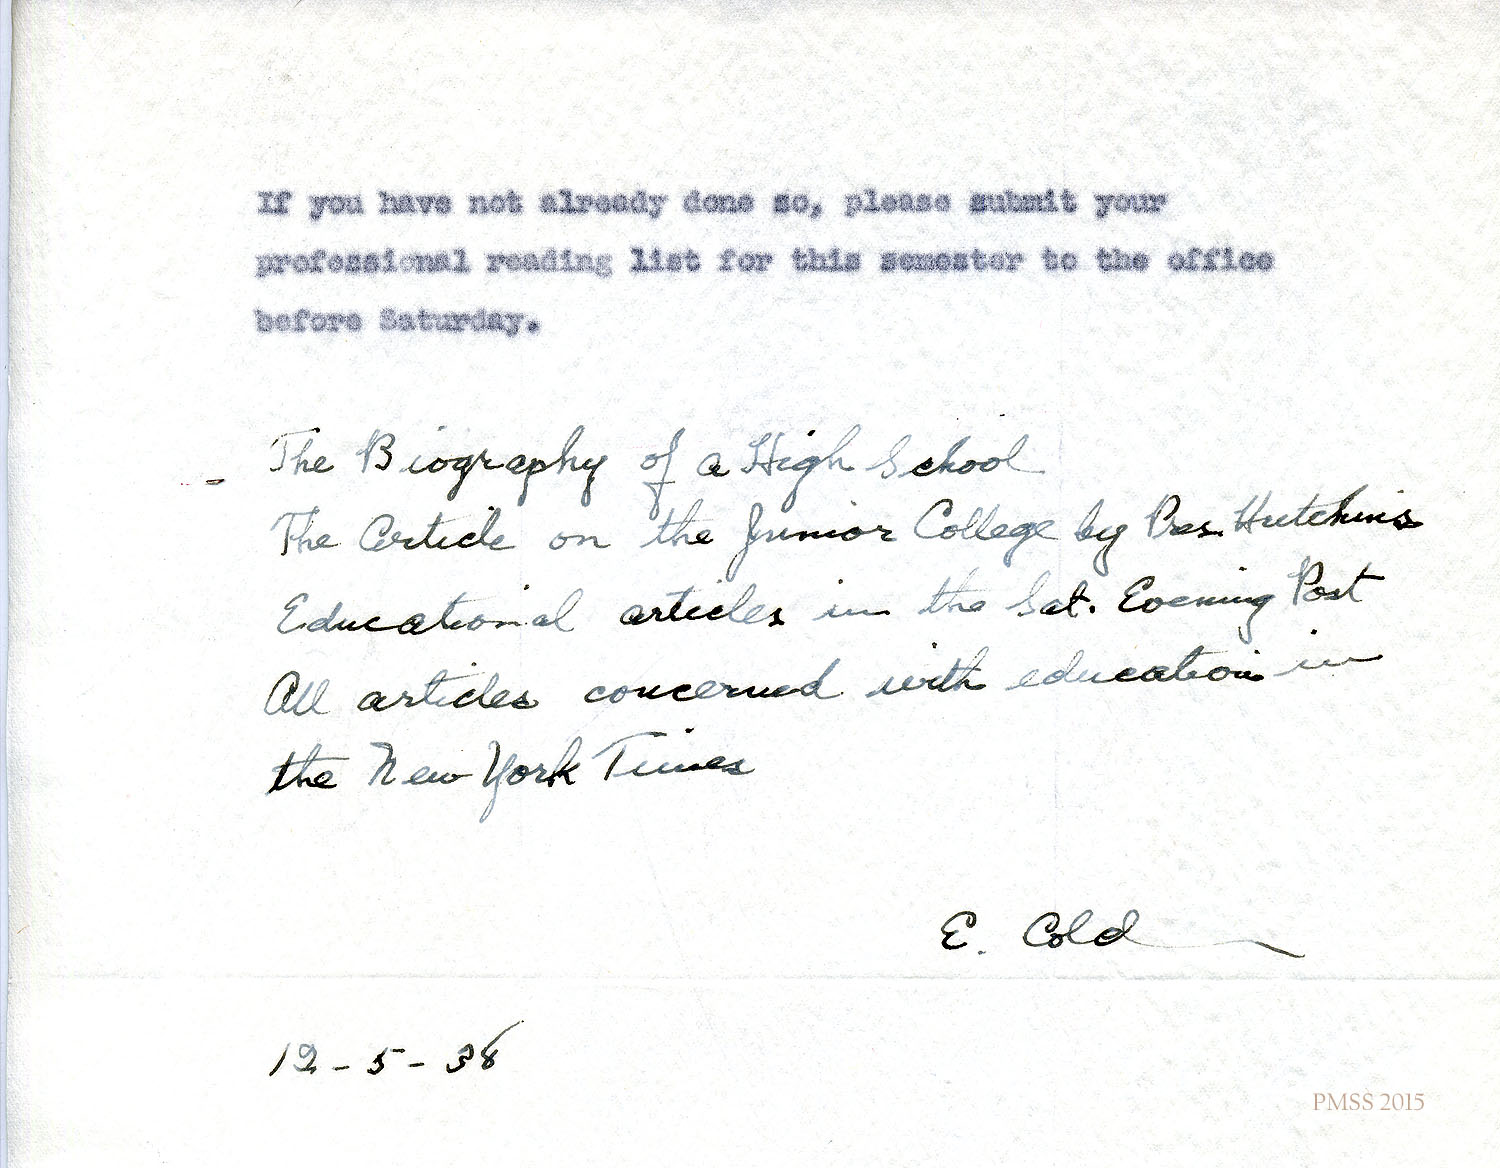 If you have not already done so, please submit your
professional reading list for this semester to the office
before Saturday.
The Biography of a High School
The Article on the Junior College by Pres. Hutchins
Educational articles in the Sat. Evening Post
All articles concerned with education in
the New York Times
E. Cold
12-5-38
PMSS 2015